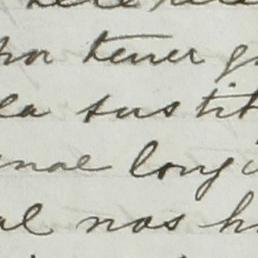 por tener g
la sustit
nal long
al nos h